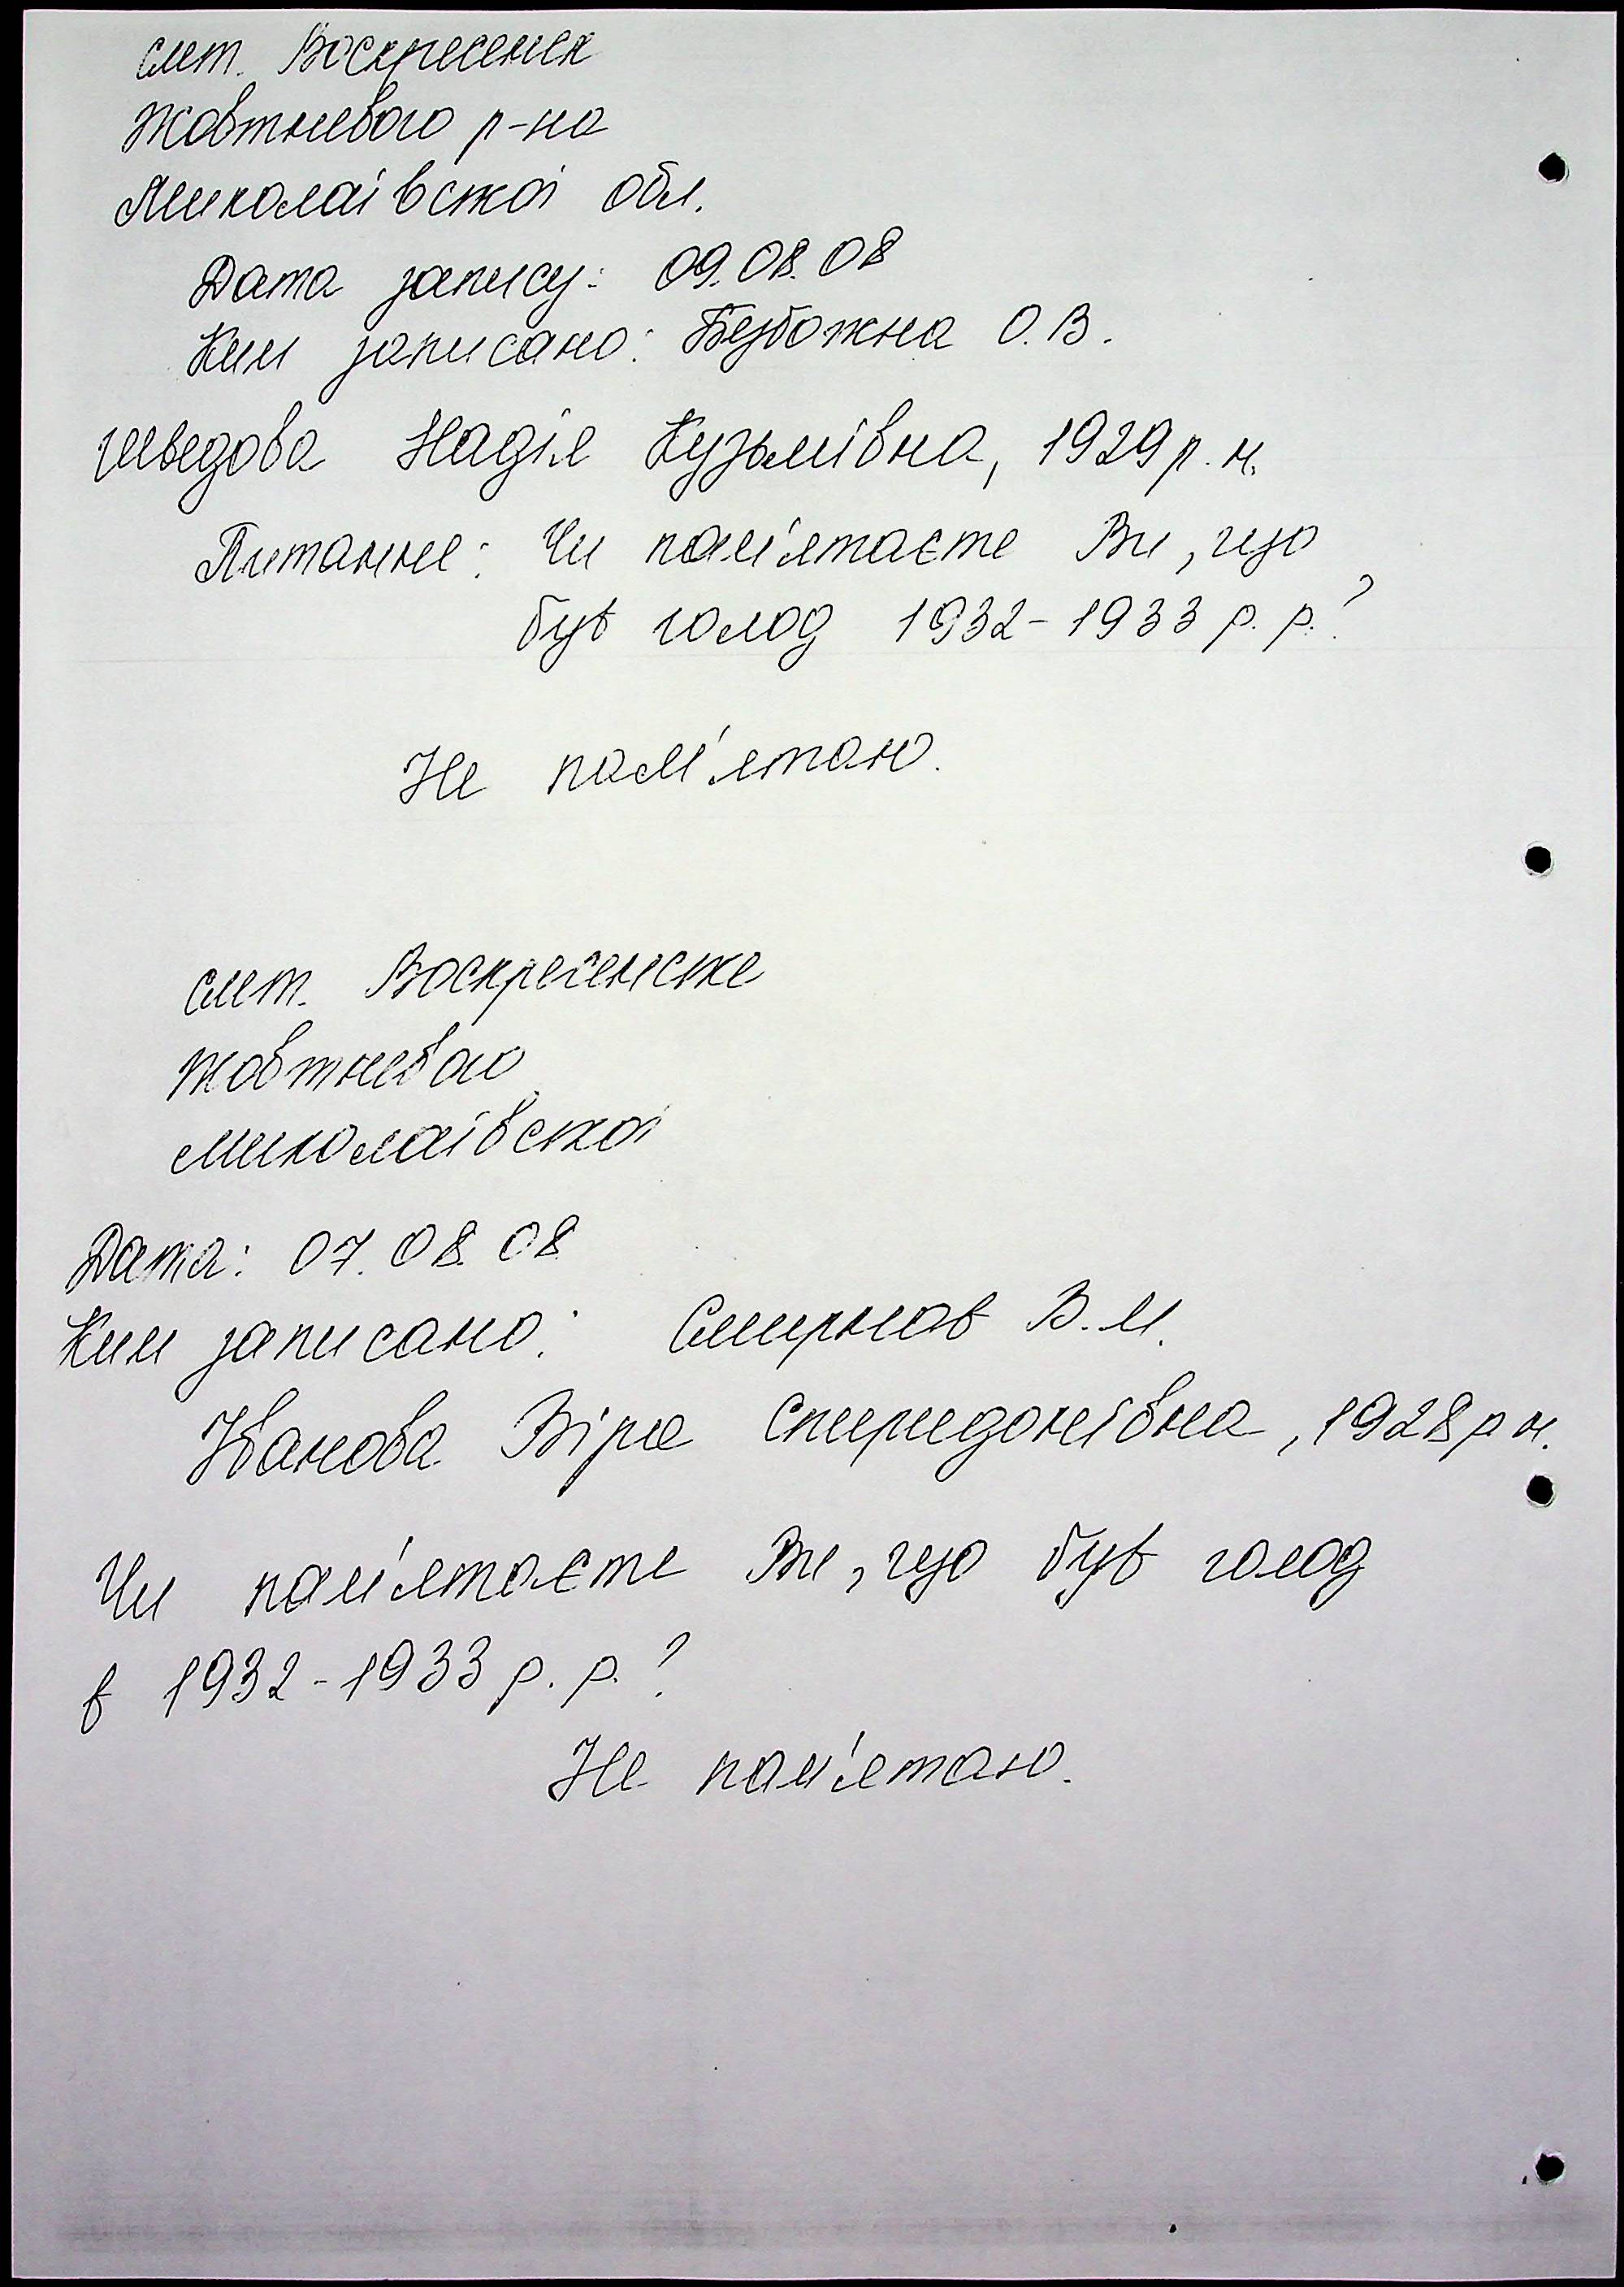 смт. Воскресенск
Жовтневого р-на
Миколаївської обл.
Дата запису: 09.08.08
Ким записано: Безбожна О.В.
Шведова Надія Кузьмівна, 1929 р.н.
Питання: Чи пам'ятаєте Ви, що
був голод 1932-1933 р.р.?
Не пам'ятаю.
смт. Воскресенське
Жовтневого
Миколаївської
Дата: 07.08.08
Ким записано: Смирнов В.М.
Іванова Віра Спиридонівна, 1928 р н.
Чи пам'ятаєте Ви, що був голод
в 1932-1933 р.р.?
Не пам'ятаю.